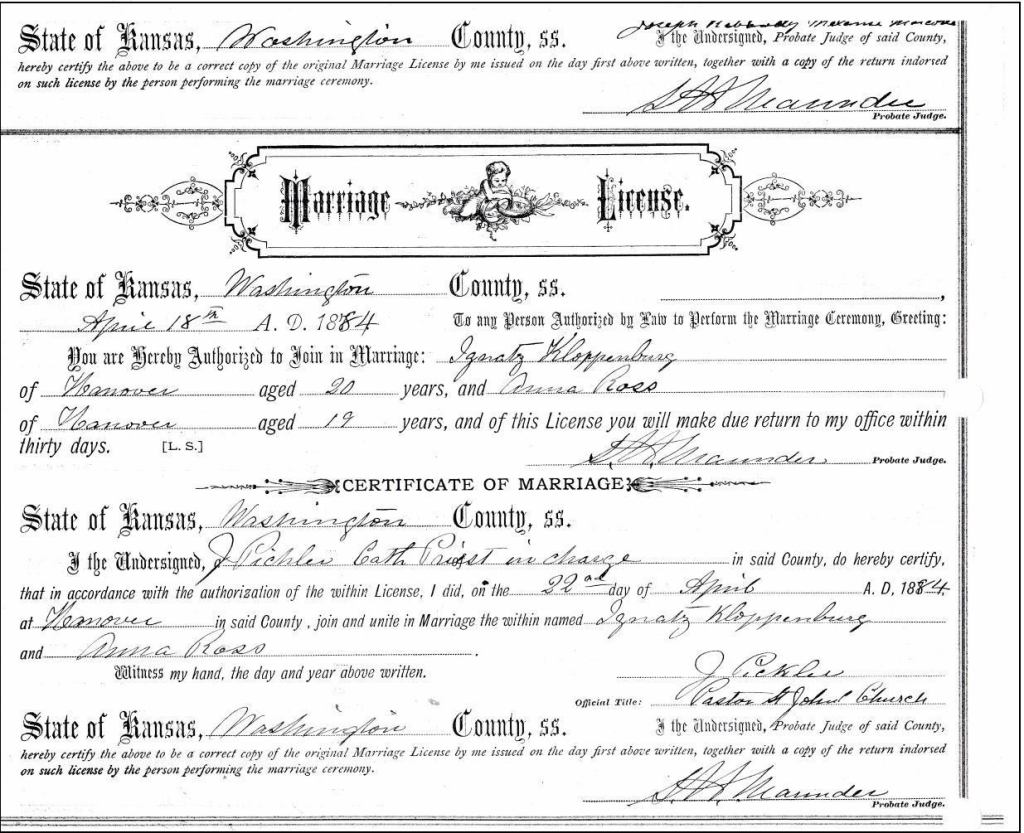 Joseph
State of Kansas, Washington County, ss. I the Undersigned, Probate Judge of said County,
hereby certify the above to be a correct copy of the original Marriage License by me issued on the day first above written, together with a copy of the return indorsed
on such license by the person performing the marriage ceremony.
S H Maunder
Probate Judge.
Marriage License.
State of Kansas, Washington County, ss. ,
April 18th A. D. 1884 To any Person Authorized by Law to Perform the Marriage Ceremony, Greeting:
You are Hereby Authorized to Join in Marriage: Ignatz Kloppenburg
of Hanover aged 20 years, and Anna Ross
of Hanover aged 19 years, and of this License you will make due return to my office within
thirty days. [L. S.] Maunder Probate Judge.
CERTIFICATE OF MARRIAGE
State of Kansas, Washington County, ss.
I the Undersigned, J Pickler Cath Priest in charge in said County, do hereby certify,
that in accordance with the authorization of the within License, I did, on the 22nd day of April A. D, 1884
at Hanover in said County, join and unite in Marriage the within named Ignatz Kloppenburg
and Anna Ross .
Witness my hand, the day and year above written. J Pickler
Official Title: Pastor St John Church
State of Kansas, Washington County, ss. I the Undersigned, Probate Judge of said County,
hereby certify the above to be a correct copy of the original Marriage License by me issued on the day first above written, together with a copy of the return indorsed
on such license by the person performing the marriage ceremony.
Maunder
Probate Judge.